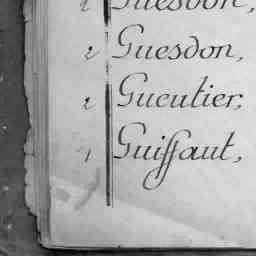 2 Guesdon,
2 Guesdon,
2 Gueutier,
1 Guiffaut,